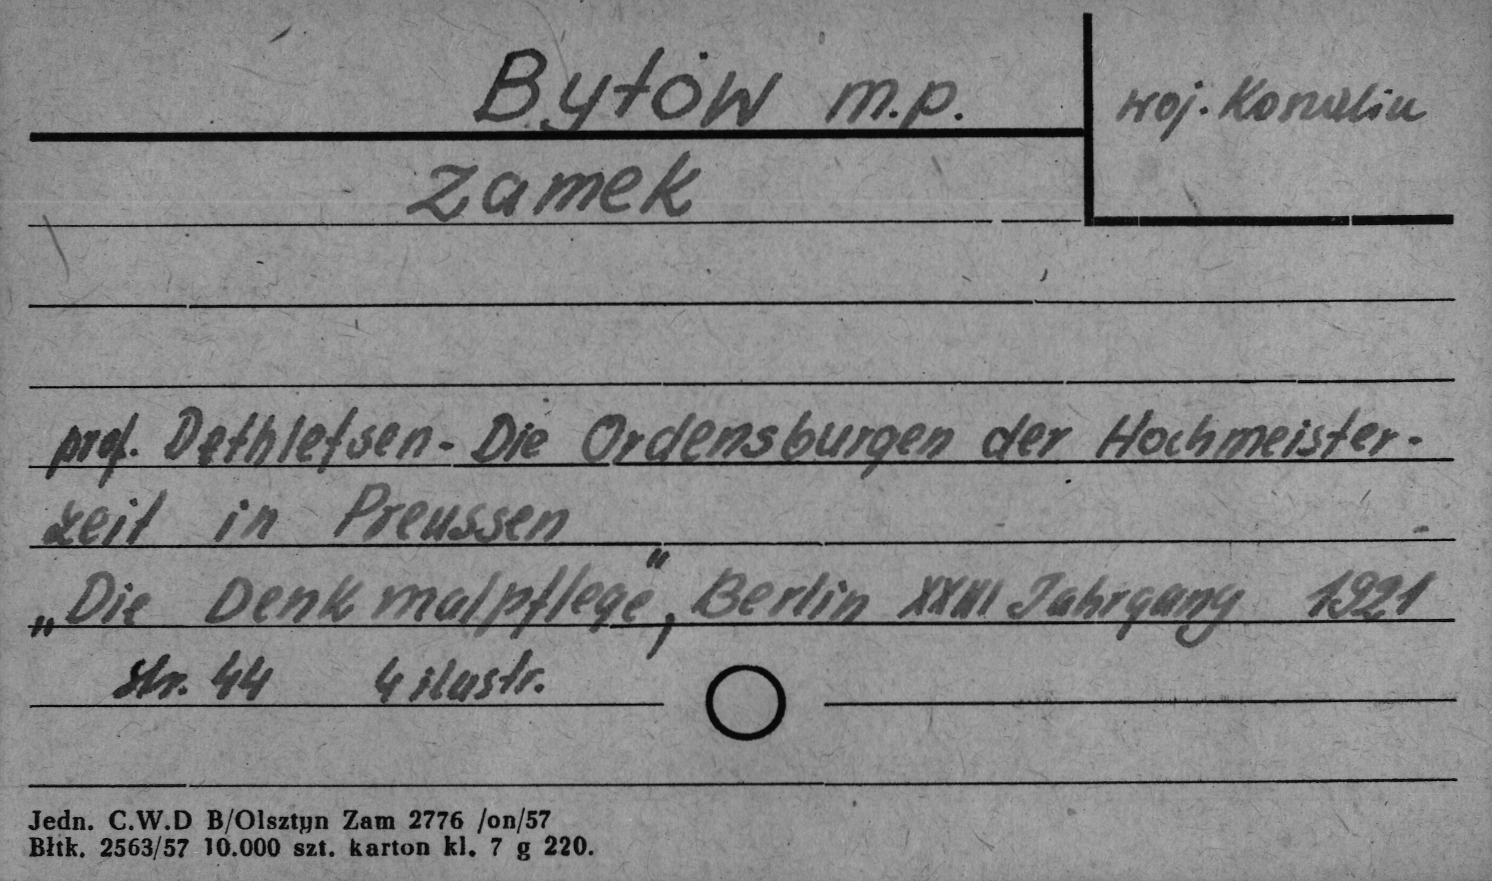 Bytów m.p.
woj. Koszalin
Zamek
prof. Dethlefsen - Die Ordensburgen der Hochmeister-
zeit in Preussen
„Die Denkmalpflege", Berlin XXIII Jahrgang 1921
str. 44 4 ilustr.
Jedn. C.W.D B/Olsztyn Zam 2776 /on/57
Błtk. 2563/57 10.000 szt. karton kl. 7 g 220.